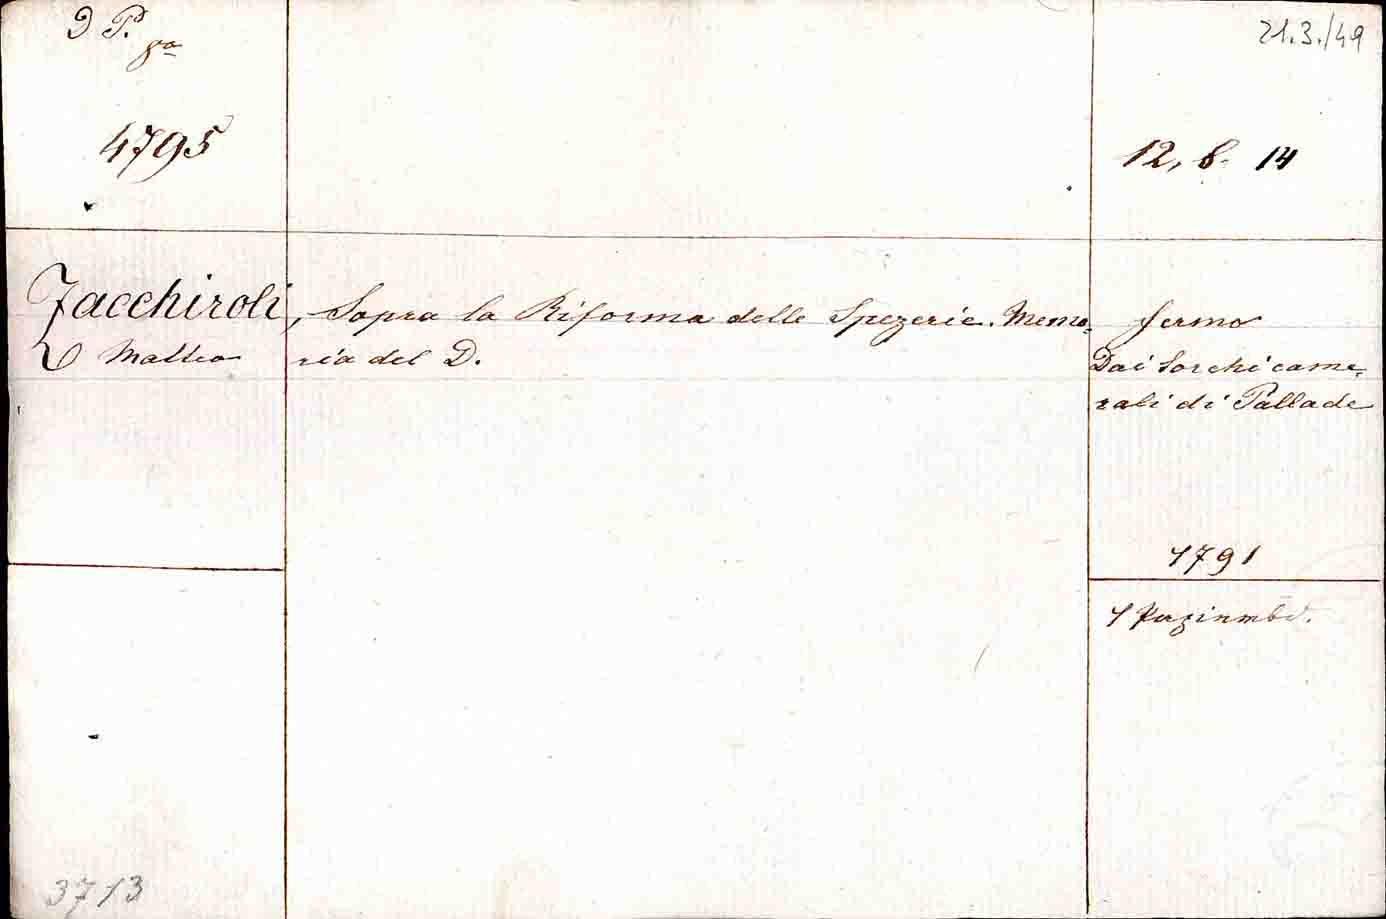 P.
8º
4795
21.3./49
12, 6. 14
Zacchiroli, Sopra la Riforma delle Spezerie. Memo-
Matteo
ria del D.
Fermo
Dai Torchi came-
rali di Pallade
1791
1
3713